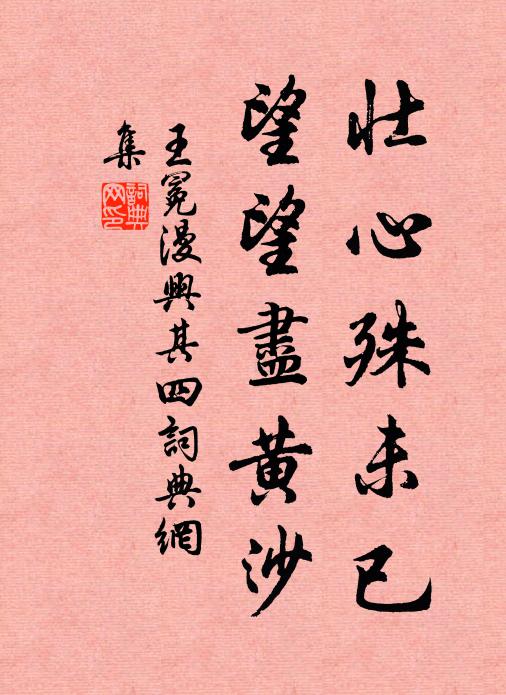 壯心殊未已
望望盡黄沙
王冕漫興其四詞典網
集
詞典網印